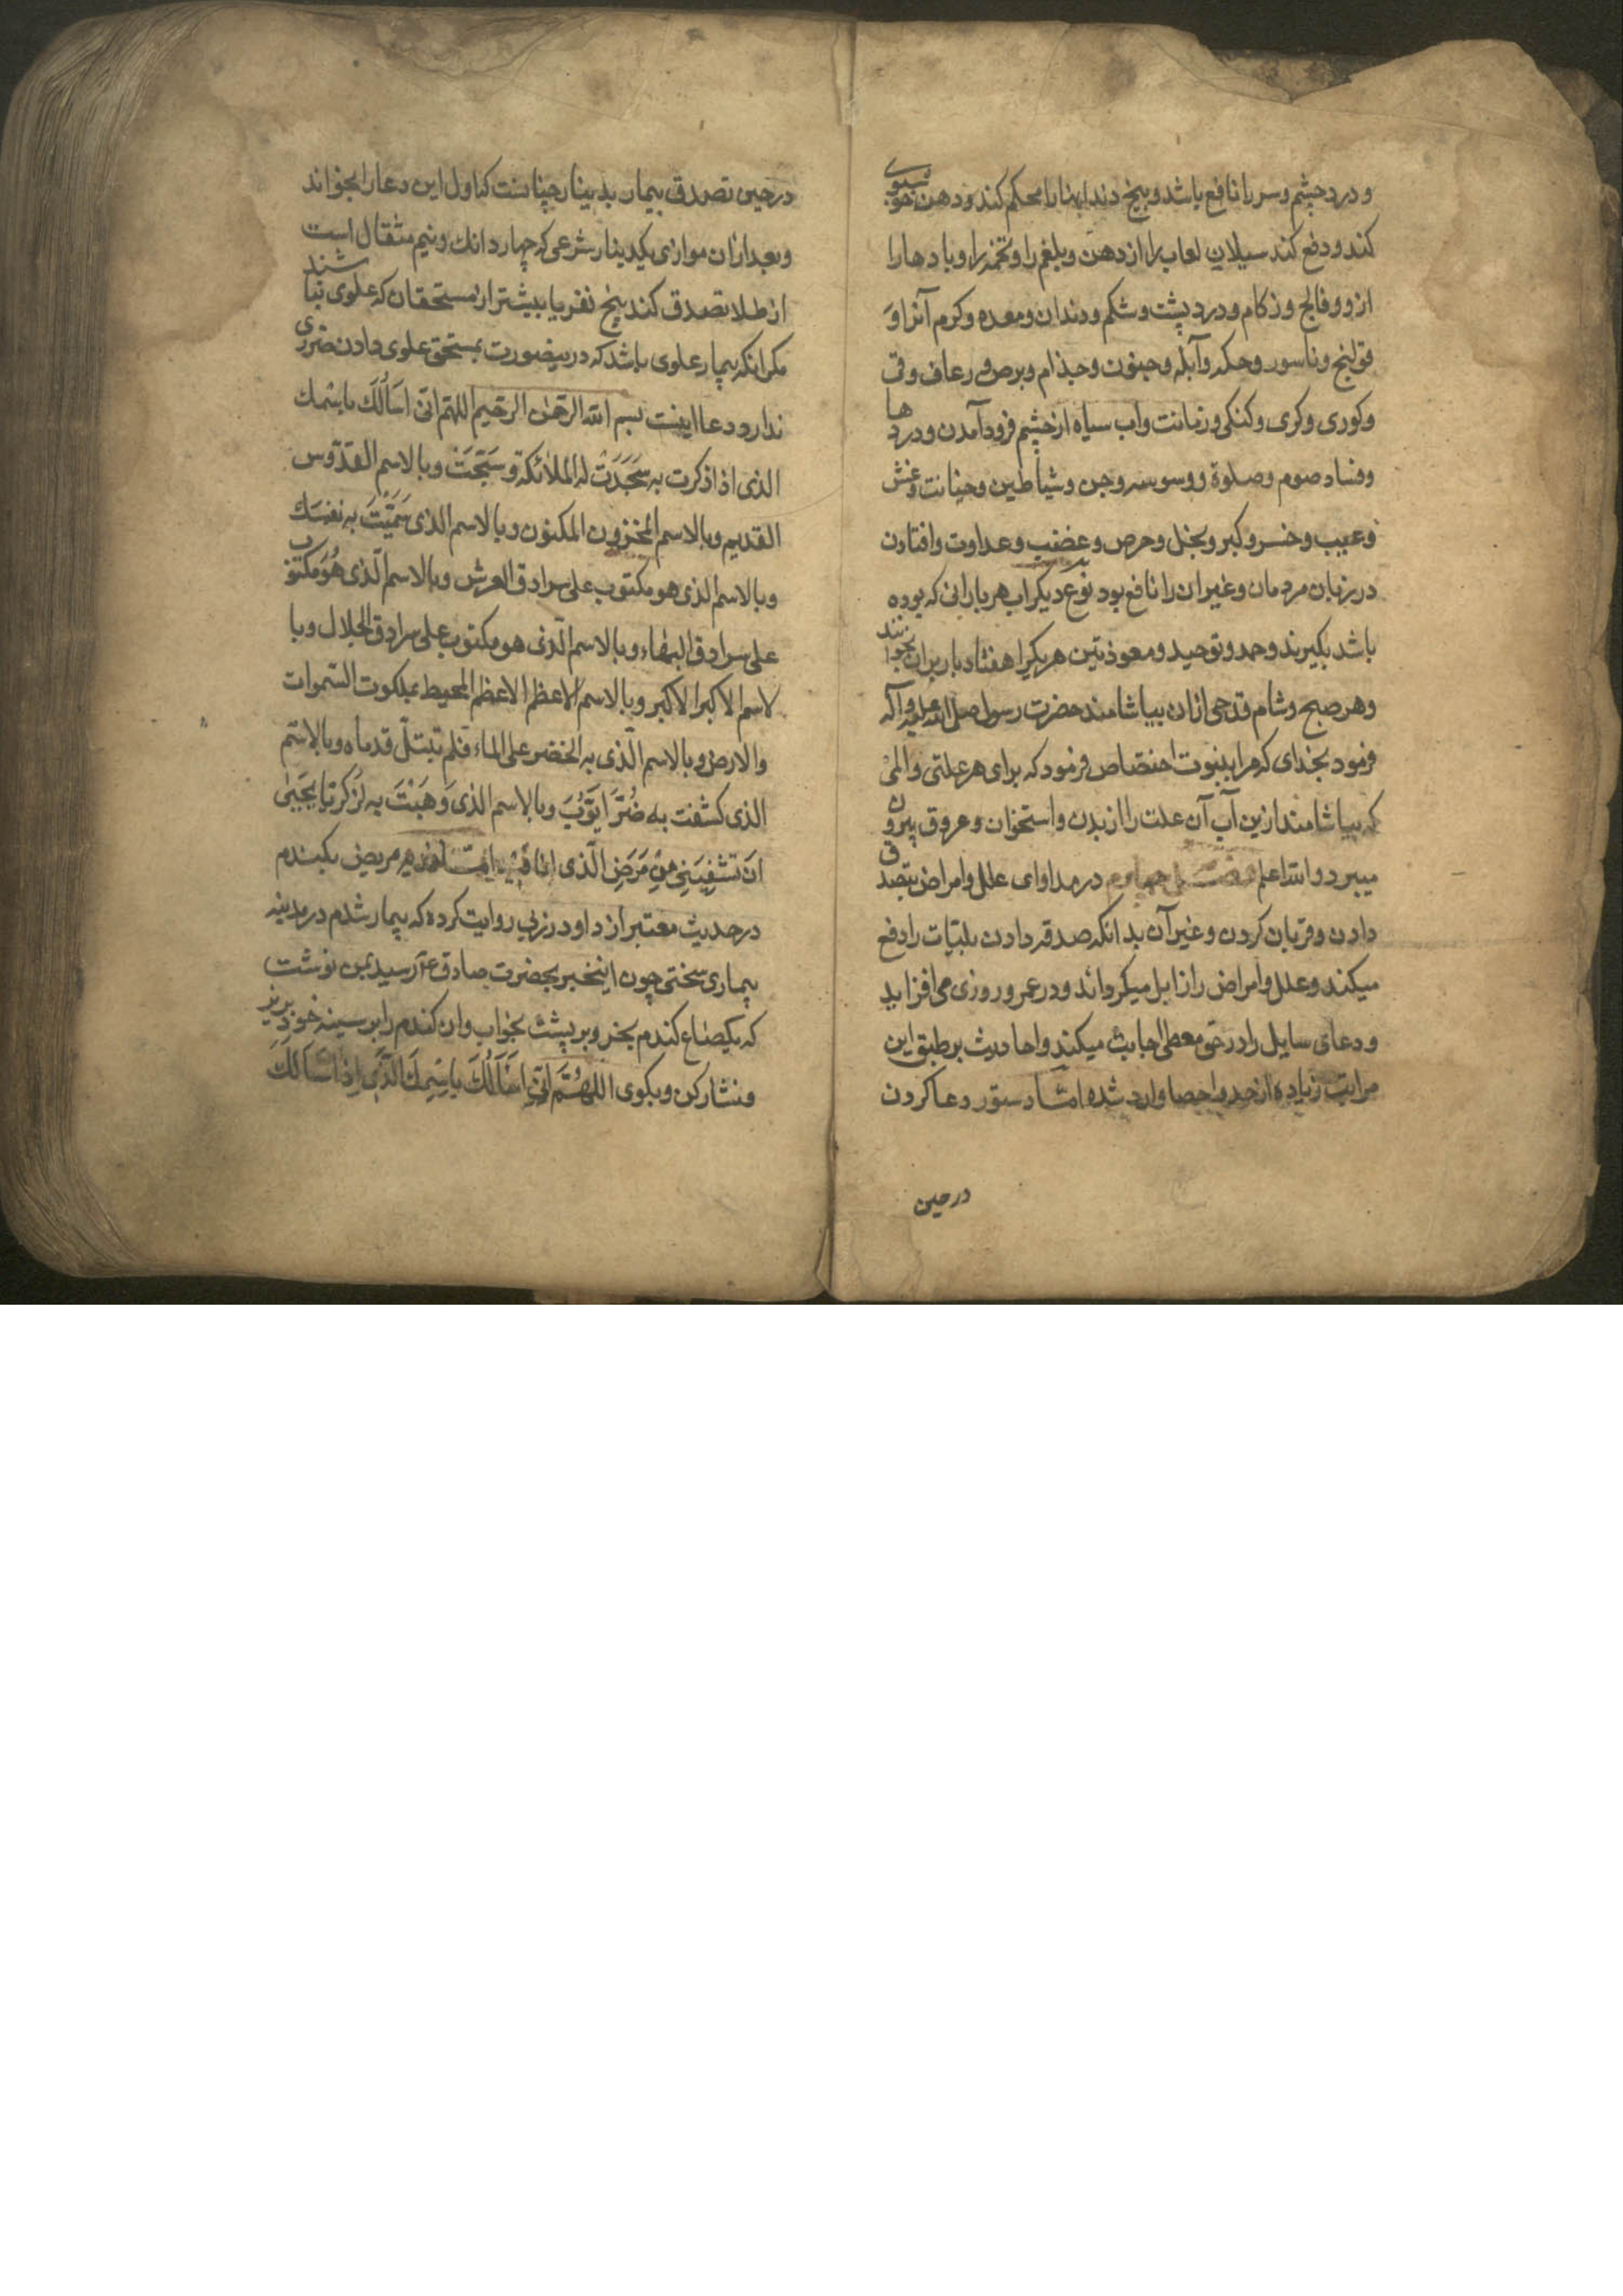 و درد چشم و سر را نافع باشد و بیخ دندانها را محکم کند و دهن خوشبوی
کند و دفع کند سیلان لعاب را از دهن و بلغم را و تخمه را و بادها را
ازو و فالج و زکام و درد پشت و شکم و دندان و معده و کرم آنرا و
قولنج و ناسور و حکه و آبله و جنون و جذام و برص و رعاف و قی
و کوری و کری و کنکی و زمانت و اب سیاه از چشم فرود آمدن و دردها
و فساد صوم و صلوة و وسوسه و جن و شیاطین و خیانت و غش
و عیب و کبر و بخل و حرص و غضب و عداوت و افتادن
در زبان مردمان و غیر ان را نافع بود نوع دیکر اب هر بارانی که بوده
باشد بکیرند و حمد و توحید و معوذتین هر یکرا هفتاد بار بران بخوانند
و هر صبح و شام قدحی ازان بیاشامند حضرت رسول صلی الله علیه و آله
فرمود بخدای که مرا بنبوت اختصاص فرمود که برای هر علتی و المی
که بیاشامند ازین آب آن علت را از بدن و استخوان و عروق بیرون
میبرد و الله اعلم فصل چهارم در مداوای علل و امراض بتصدق
دادن و قربان کردن و غیر آن بدانکه صدقه دادن بلیّات را دفع
میکند و علل و امراض را زایل میکرداند و در عمر و روزی می افزاید
و دعای سایل را در حق معطی اجابت میکند و احادیث بر طبق این
مراتب زیاده از حد و احصا وارد شده امّا دستور دعا کردن
در حین
در حین تصدق بیمار بدینار چنانست که اول این دعا را بخواند
و بعد ازان موازی یکدینار شرعی که چهار دانك و نیم مثقال است
از طلا تصدق کند پنج نفر یا بیشتر از مستحقان که علوی نباشند
مکر انکه بیمار علوی باشد که درینصورت بمستحق علوی دادن ضرری
ندارد و دعا اینست بسم الله الرحمن الرحیم اللهم انی اسألك باسمك
الذی اذا ذکرت به سَجَدَتْ له الملائکة و سَبَّحَتْ و بالاسم القدّوس
القدیم و بالاسم المخزون المکنون و بالاسم الذی سَمَّیْتَ به نفسك
و بالاسم الذی هو مکتوب علی سرادق العرش و بالاسم الّذی هُوَ مکتوب
علی سرادق البهاء و بالاسم الّذی هو مکتوب علی سرادق الجلال و با
لاسم الاکبر الاکبر و بالاسم الاعظم الاعظم المحیط بملکوت السّموات
و الارض و بالاسم الّذی به الخضر علی الماء فلم تبتلّ قدماه و بالاسم
الذی کشفت به ضُرَّ ایّوُبَ و بالاسم الذی وَهَبْتَ به لزکریّا یَحْییٰ
اَنْ تَشْفِیَنِی مِنْ مَرَضِ الّذی انا فیه امّا مریض بکندم
در حدیث معتبر از داود رزبی روایت کرده که بیمار شدم در مدینه
بیماری سختی چون اینخبر بحضرت صادق ع رسید بمن نوشت
که یکصاع کندم بخر و بر پشت بخواب و ان کندم را بر سینه خود بریز
و نثار کن و بکوی اللهُمَّ اِنّی اَسْاَلُكَ بِاسْمِكَ الَّذی اِذا سَاَلَكَ